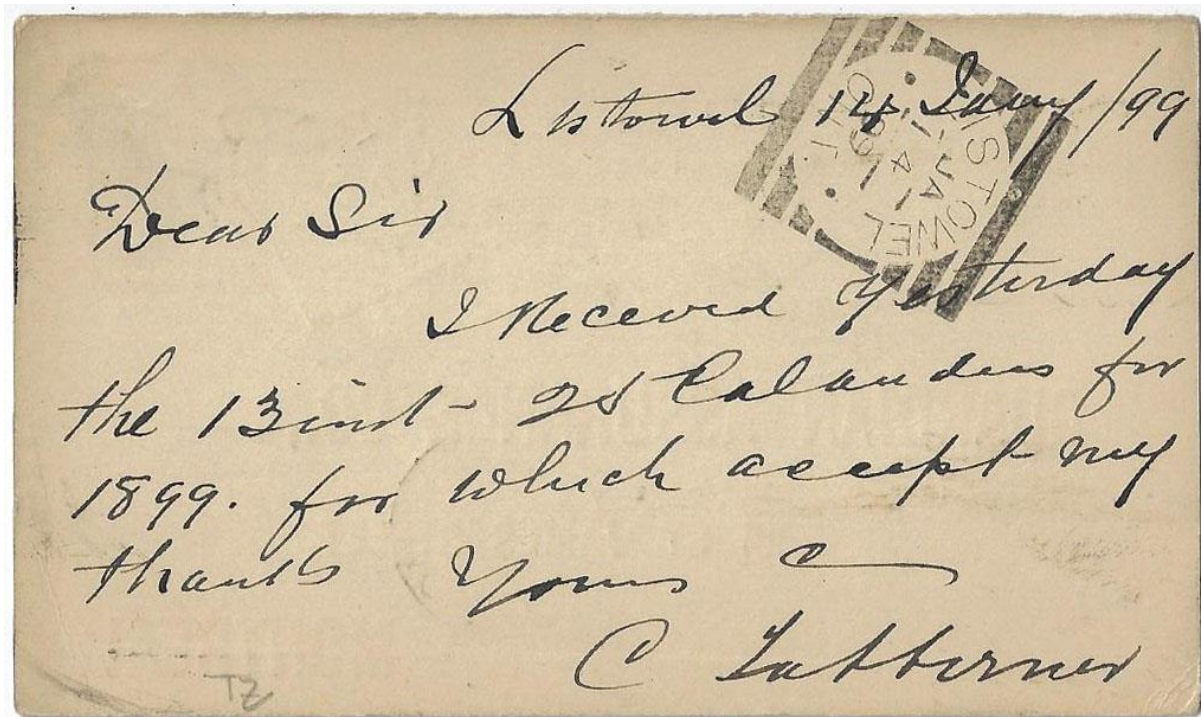 Listowel 14 Jany/99
LISTOWEL
JA 14
99
ONT.
Dear Sir
I Received Yesterday
the 13 inst - 25 Calanders for
1899. for which accept my
thanks Yours
C Tabberner
TZ